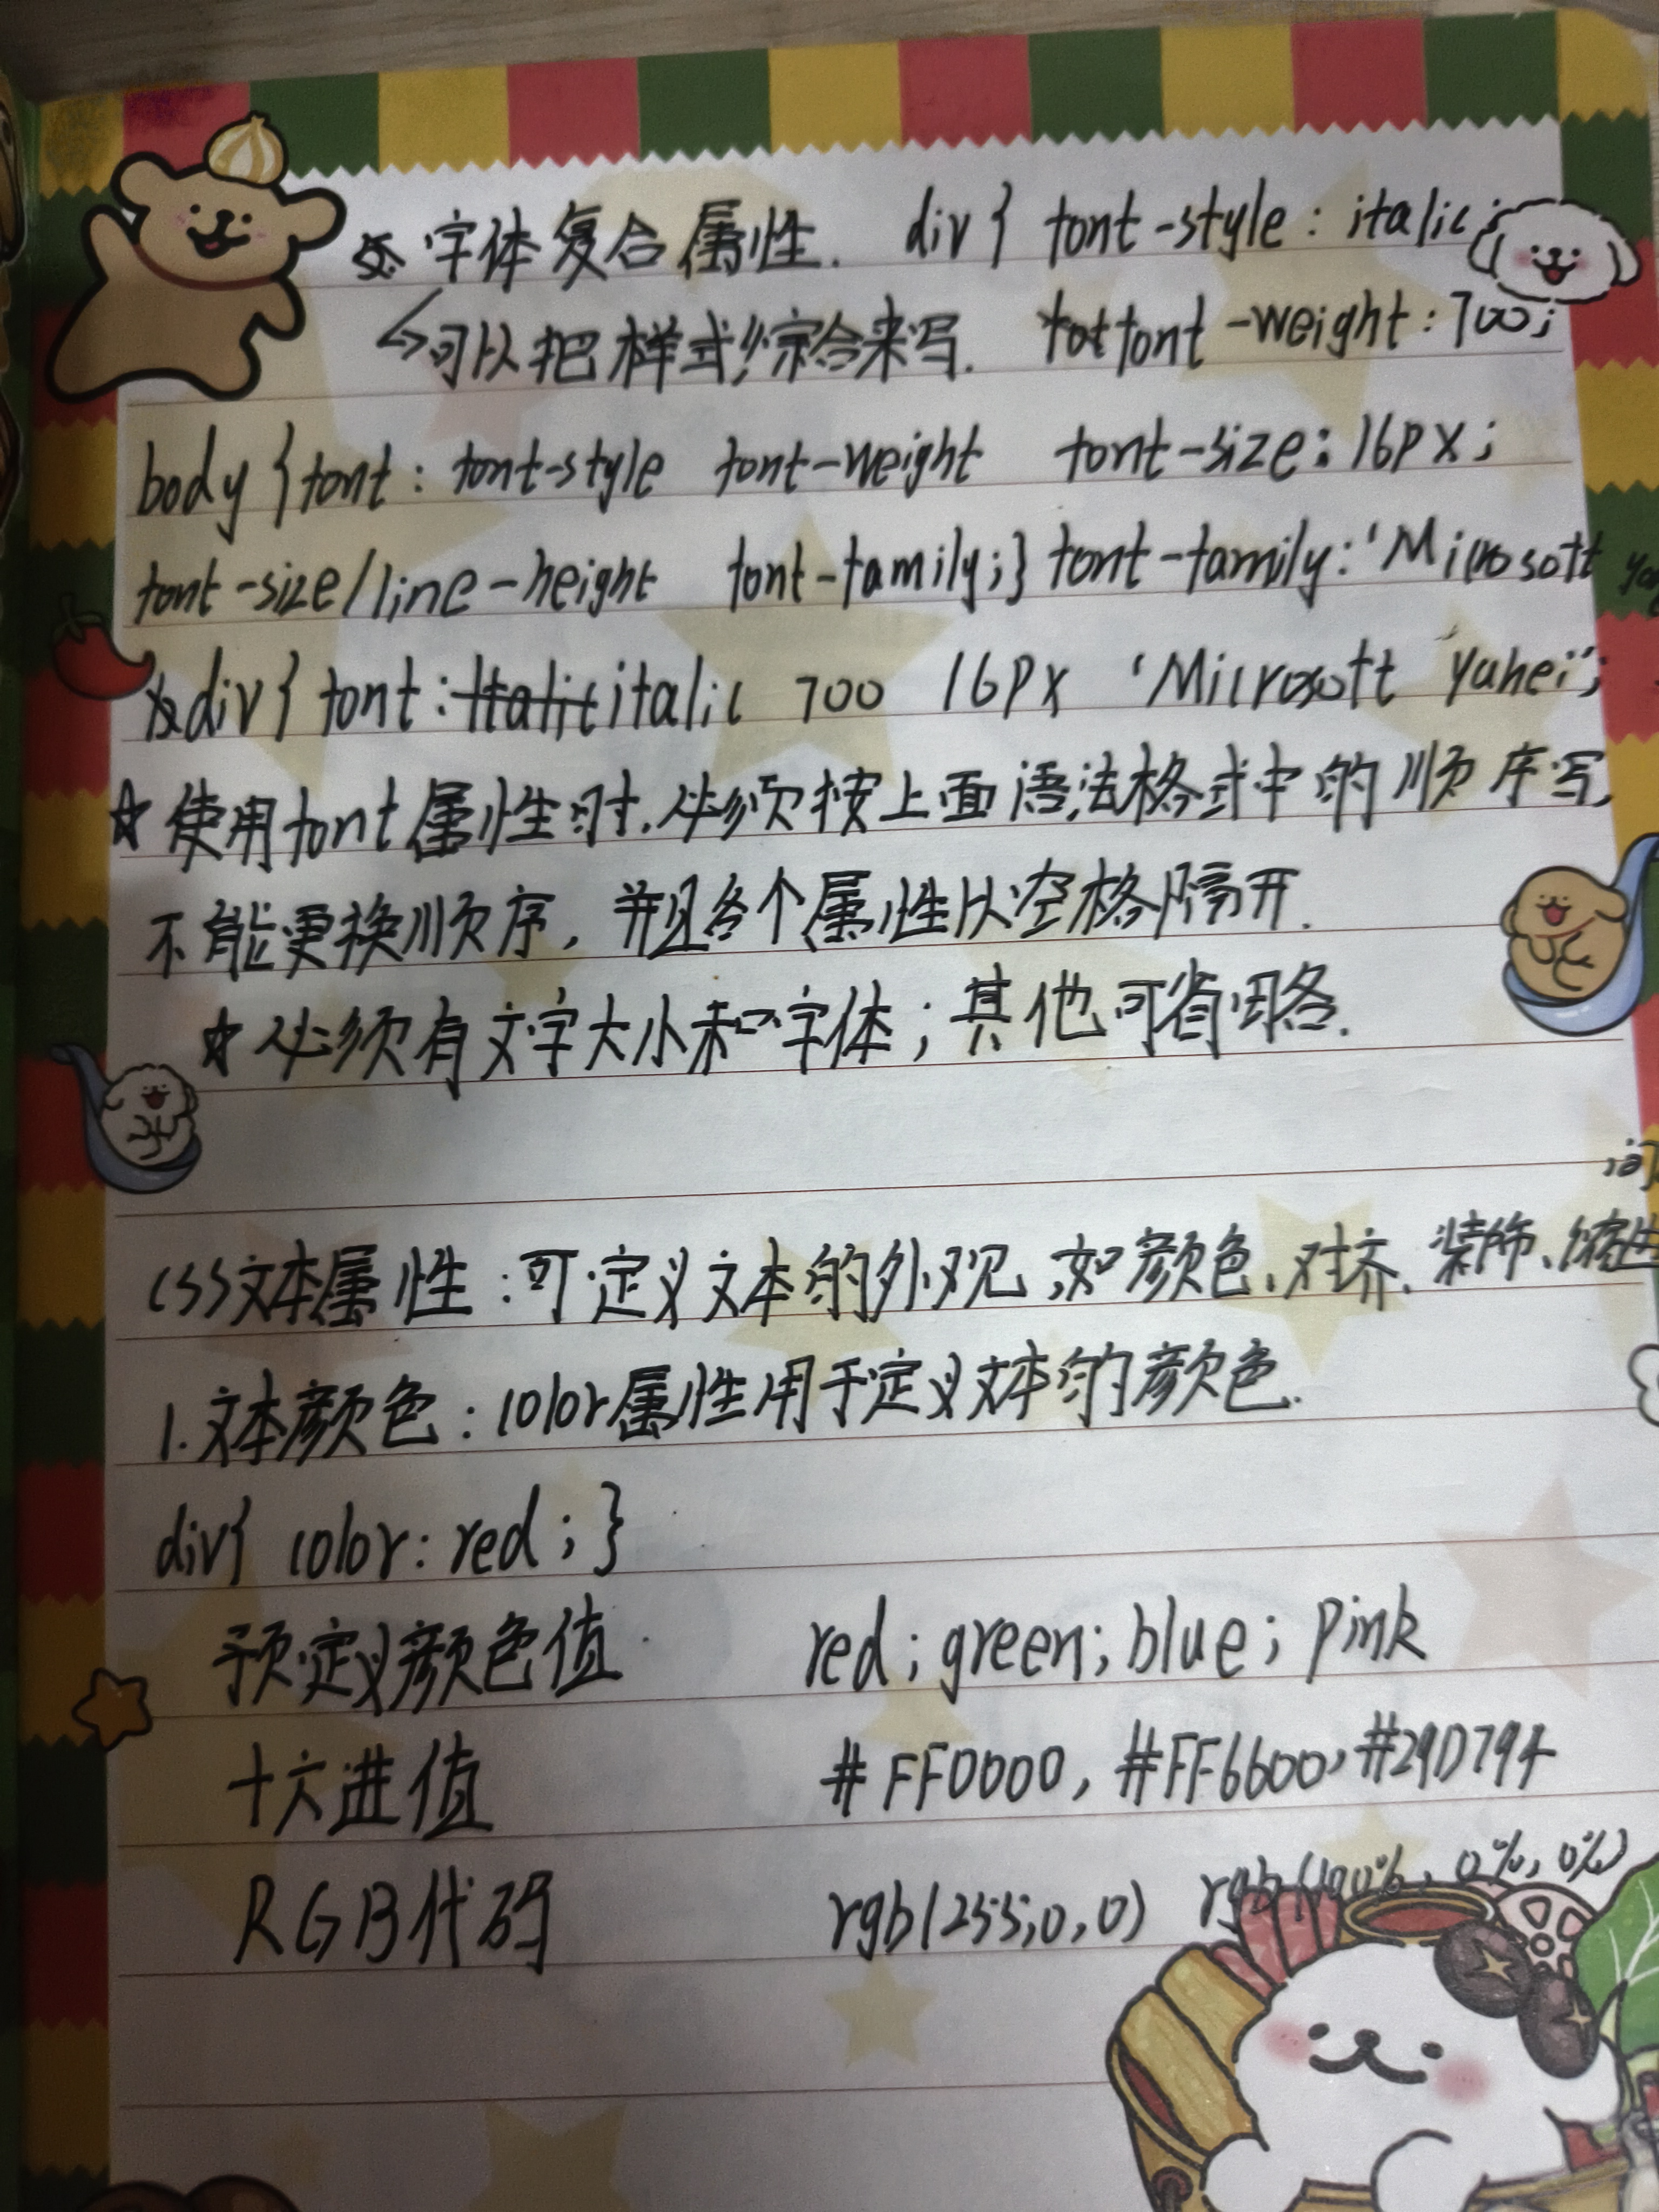 ☆ 字体复合属性. div { font-style: italic;
↳可以把样式综合来写. font-weight: 700;
body {font: font-style font-weight font-size: 16px;
font-size/line-height font-family;} font-family: 'Microsoft
div { font: italic 700 16px 'Microsoft Yahei';
☆ 使用font属性时,必须按上面语法格式中的顺序写,
不能更换顺序,并且各个属性以空格隔开.
☆ 必须有文字大小和字体;其他可省略.
CSS文本属性:可定义文本的外观,如颜色、对齐、装饰、缩进
1.文本颜色:color属性用于定义文本的颜色.
div{ color: red; }
预定义颜色值 red; green; blue; pink
十六进值 #FF0000, #FF6600, #29D794
RGB代码 rgb(255,0,0) rgb(100%, 0%, 0%)